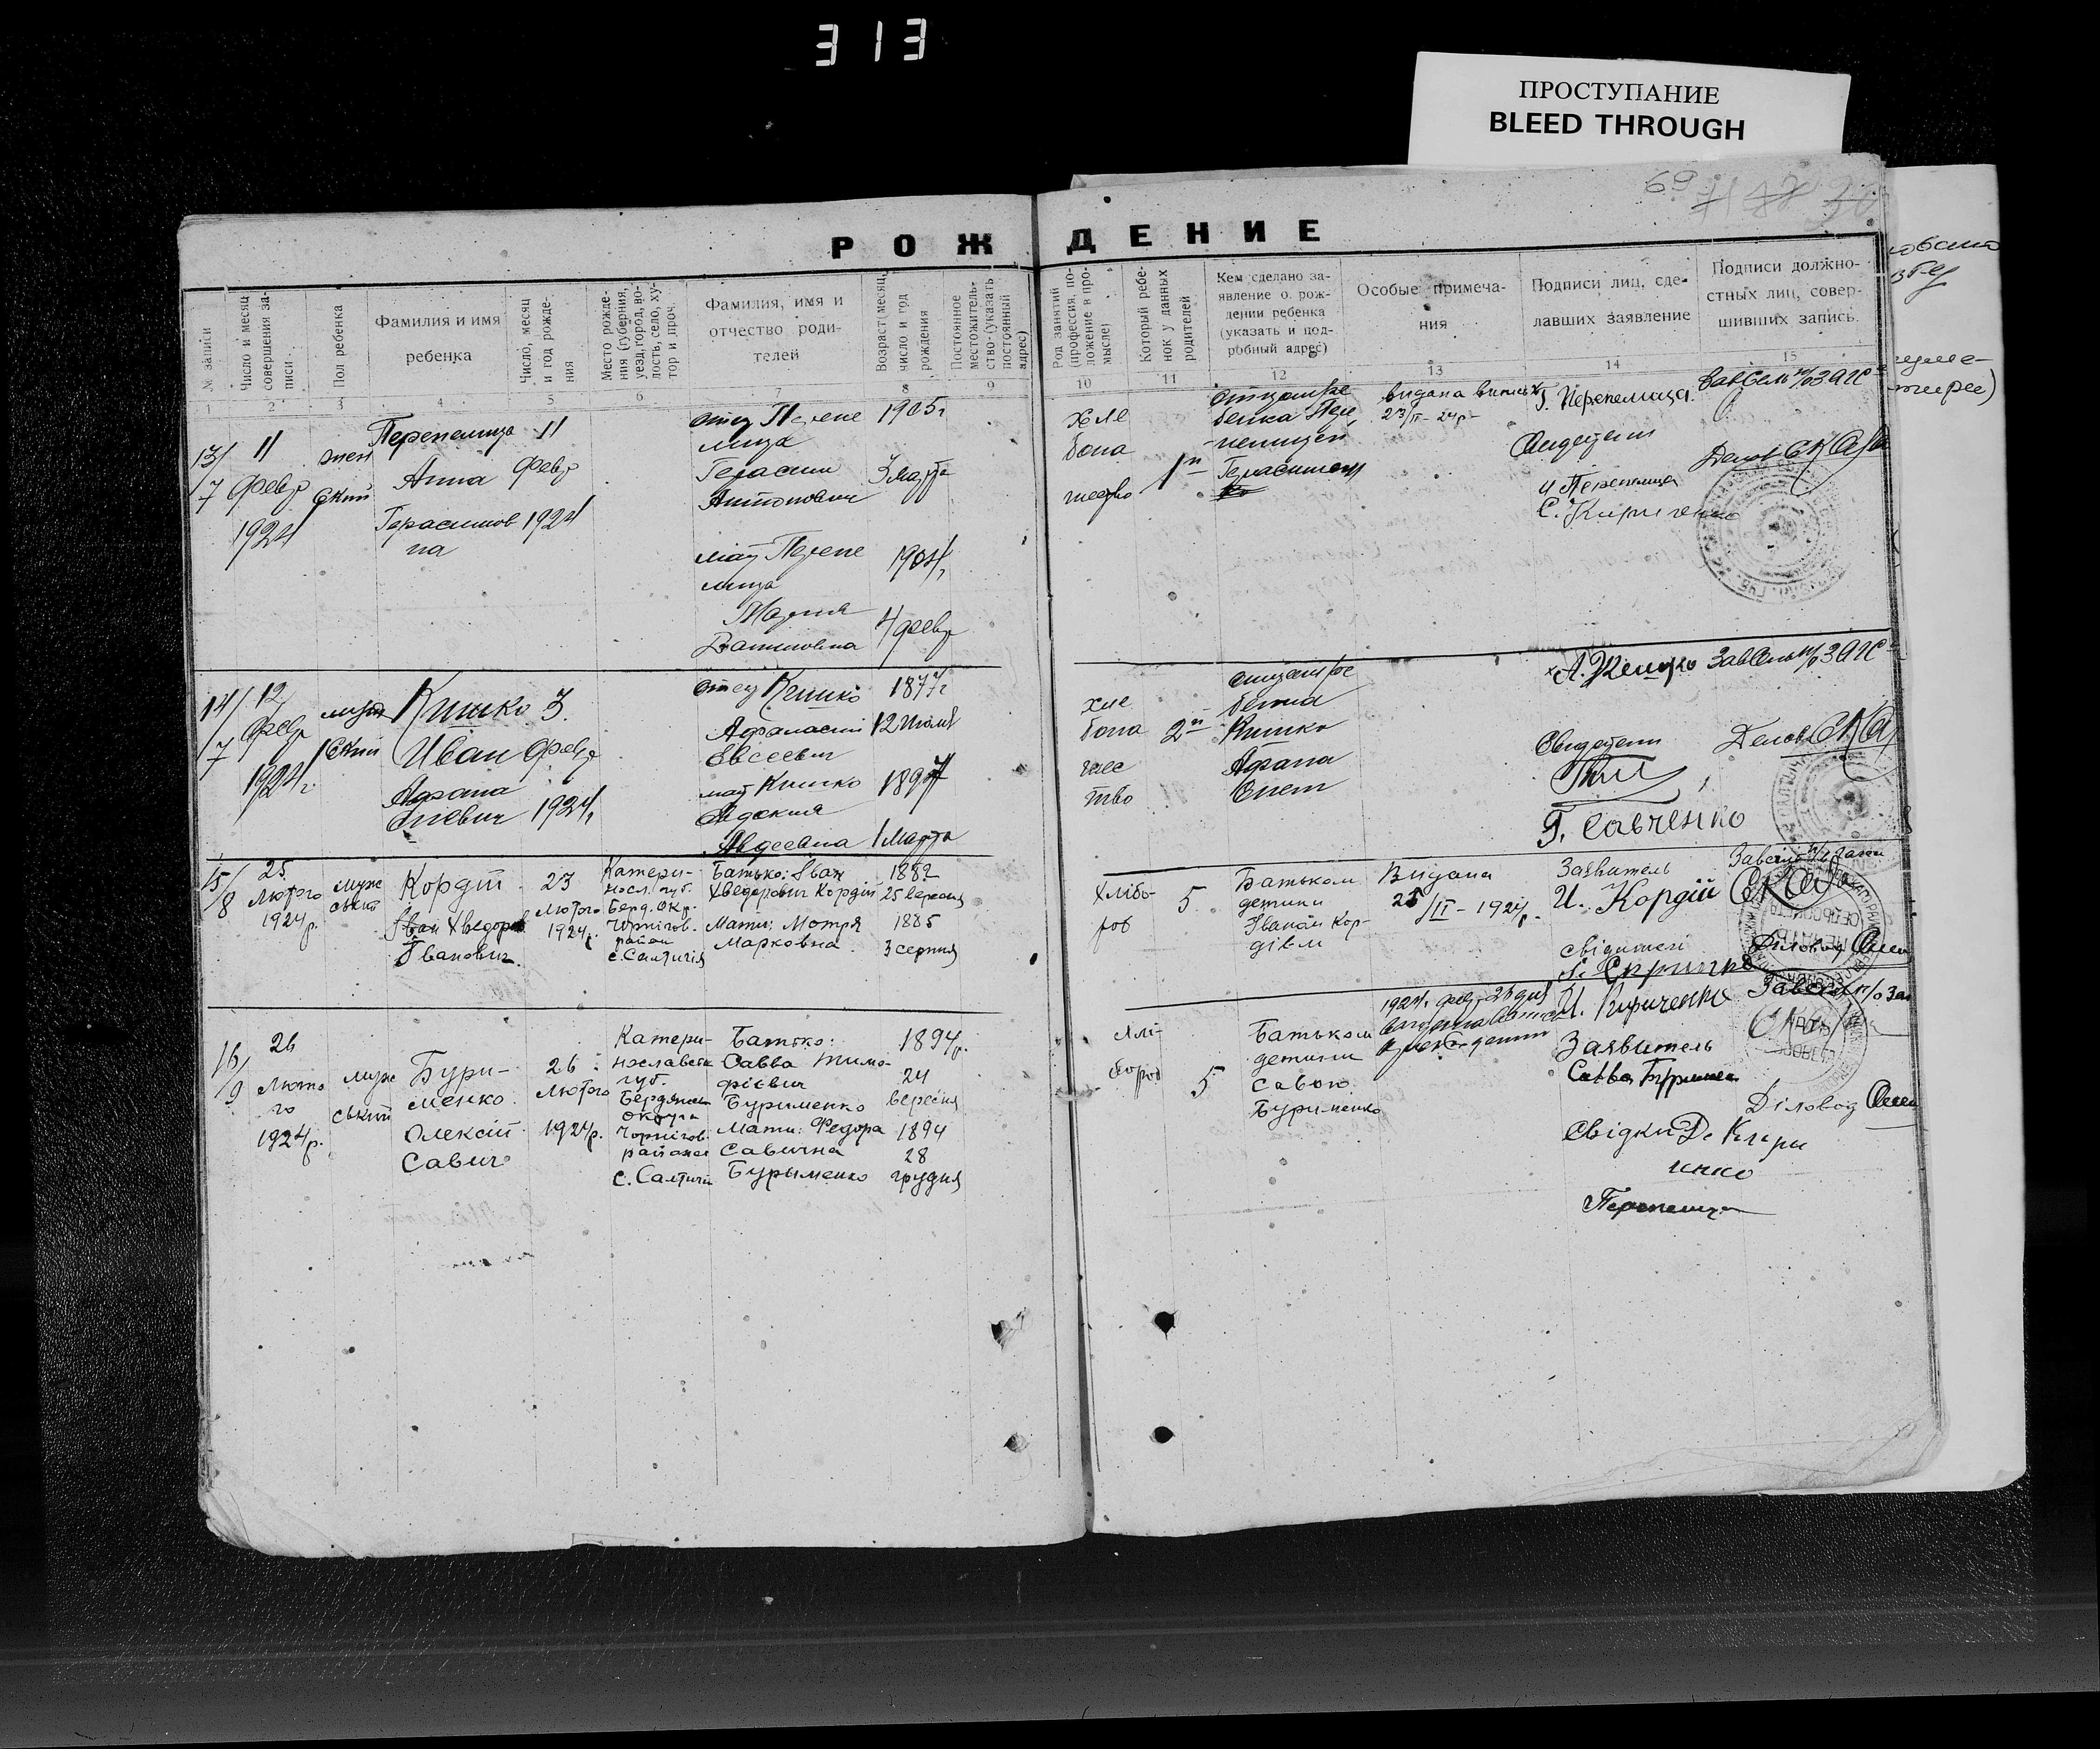 313
ПРОСТУПАНИЕ
BLEED THROUGH
69
РОЖДЕНИЕ
№ записи
Число и месяц совершения записи
Пол ребенка
Фамилия и имя ребенка
Число, месяц и год рождения
Место рождения (губерния, уезд, город, волость, село, хутор и проч.
Фамилия, имя и отчество родителей
Возраст (месяц, число и год рождения
Постоянное местожительство (указать постоянный адрес)
Род занятий (профессия, положение в промысле)
Который ребенок у данных родителей
Кем сделано заявление о рождении ребенка (указать и подробный адрес)
Особые примечания
Подписи лиц, сделавших заявление
Подписи должностных лиц, совершивших запись.
1 2 3 4 5 6 7 8 9 10 11 12 13 14 15
13/7
11
Февр
1924
жен
ский
Перепелица
Анна
Герасимов
на
11
Февр
1924
отец Перепе
лица
Герасим
Антонович
1905г
3 марта
мать Перепе
лица
Мария
1904г
4 февр
Хле
бопа
шество
1й
отцом ре
бенка Пере
пелицей
Герасимом
видана
23/II-24р
Г. Перепелица
Свидетели
И Перепелица
С. Кириченко
ЗавСель п/о ЗАГС
14/7
12
Февр
1924г.
муж
ский
Кишко
Иван
Афана
сиевич
3
Февр
1924г
отец Кишко
Афанасий
Евсеевич
мать Кишко
Евдокия
Авдеевна
1877г
12 Июля
1897
1 Марта
хле
бопа
шес
тво
2й
отцом ре
бенка
Кишко
Афана
сием
А. Кешко
Свидетели
Г. Савченко
ЗавСель п/о ЗАГС
15/8
25
лютого
1924р.
муже
ський
Кордій
Іван Хведоров
Іванович.
23
лютого
1924р.
Катери-
носл. губ.
Берд. окр.
Чорнігов.
район
с. Салтичія
Батько: Іван
Хведорович Кордій
Мати: Мотря
Марковна
1882
25 вересня
1885
3 серпня
Хлібо-
роб
5
Батьком
дитини
Іваном Кор-
дієм
Видана
25/II-1924р.
Заявитель
И. Кордій
свідители
И. Кириченко
Діловод
16/9
26
Люто
го
1924р.
муже
ський
Бури-
менко
Олексій
Савич
26
лютого
1924р.
Катери-
нославськ
губ.
Бердянськ
округа
Чорнігов.
района
с. Салтичія
Батько:
Савва Тимо-
фієвич
Бурименко
Мати: Федора
Савична
Бурыменко
1894р.
24
вересня
1894
28
грудня
Хлі-
бороб
5
Батьком
дитини
Савою
Буриненко
Заявитель
Савва Буримен
Свідки Д. Кири
ченко
Перепелица
Діловод